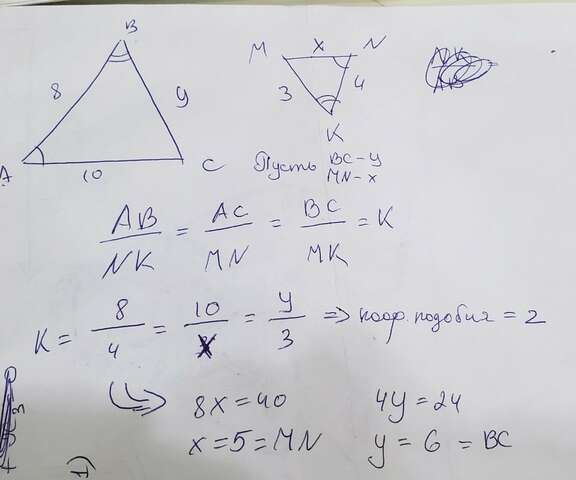 B
8
y
A
10
C
M
x
N
3
4
K
Пусть BC - y
MN - x
AB/NK = AC/MN = BC/MK = K
K = 8/4 = 10/x = y/3 => коэф. подобия = 2
8x = 40
4y = 24
x = 5 = MN
y = 6 = BC
1)